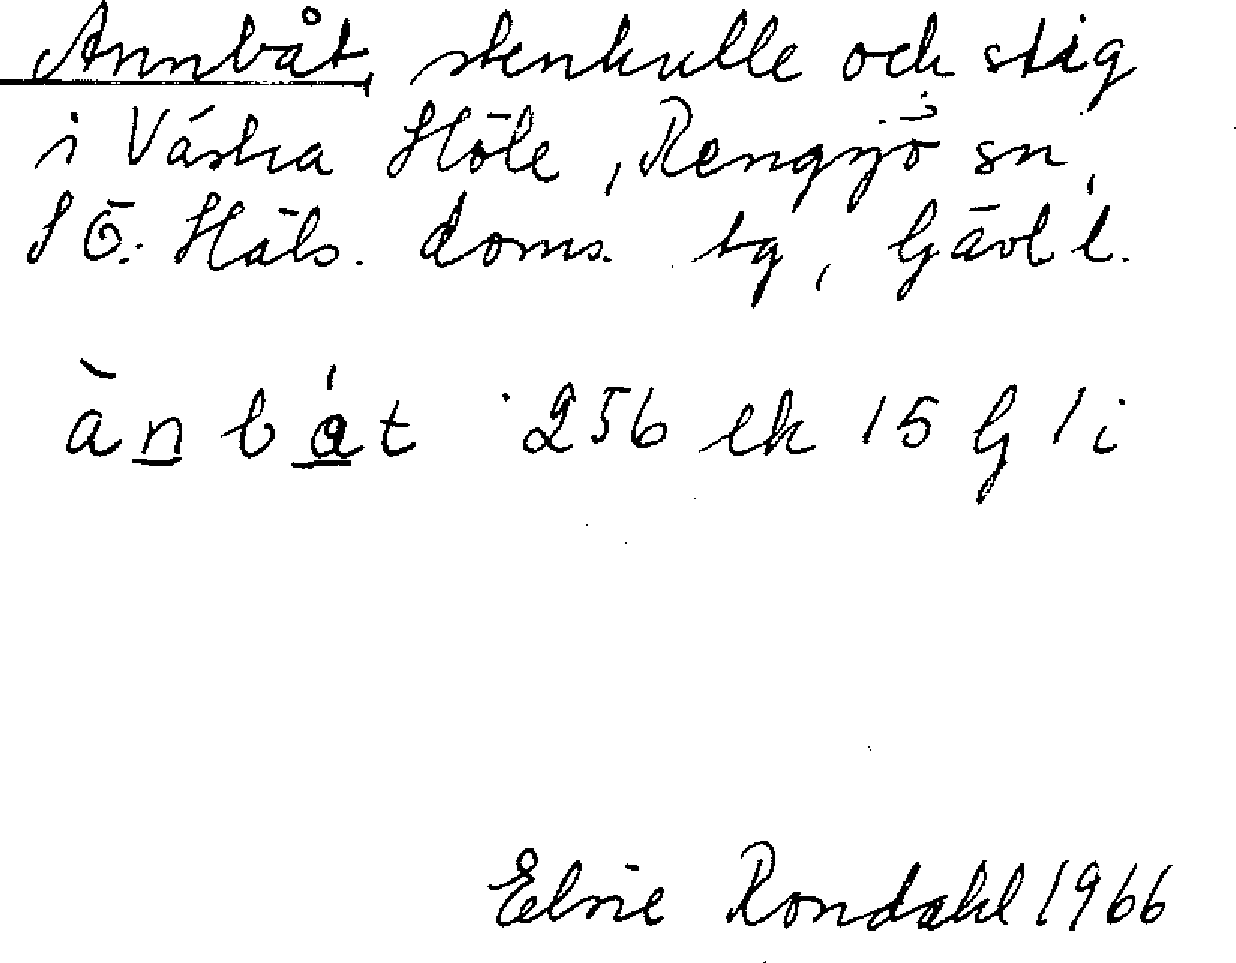 Annbåt, stenkulle och stig
i Västra Höle, Rengsjö sn,
SÖ. Häls. doms. tg, Gävl l.
ànbát 256 ek 15 G 1 i
Elsie Rondahl 1966